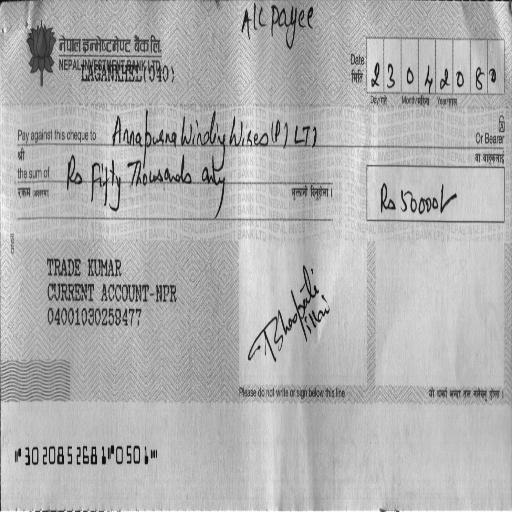 A/C Payee
नेपाल इन्भेष्टमेण्ट बैंक लि.
NEPAL INVESTMENT BANK LTD.
LAGANKHEL(040)
Date
मिति
2 3 0 4 2 0 8 0
Day/गते Month/महिना Year/साल
Pay against this cheque to Annapurna Winding Wires (P) LTD
Or Bearer
श्री
वा वाहकलाई
the sum of Rs Fifty Thousands only
रकम अक्षरूपी
भुक्तानी दिनुहोला ।
Rs 50000/-
TRADE KUMAR
CURRENT ACCOUNT-NPR
04001030259477
Please do not write or sign below this line
⑈30208526 8⑈0501⑈